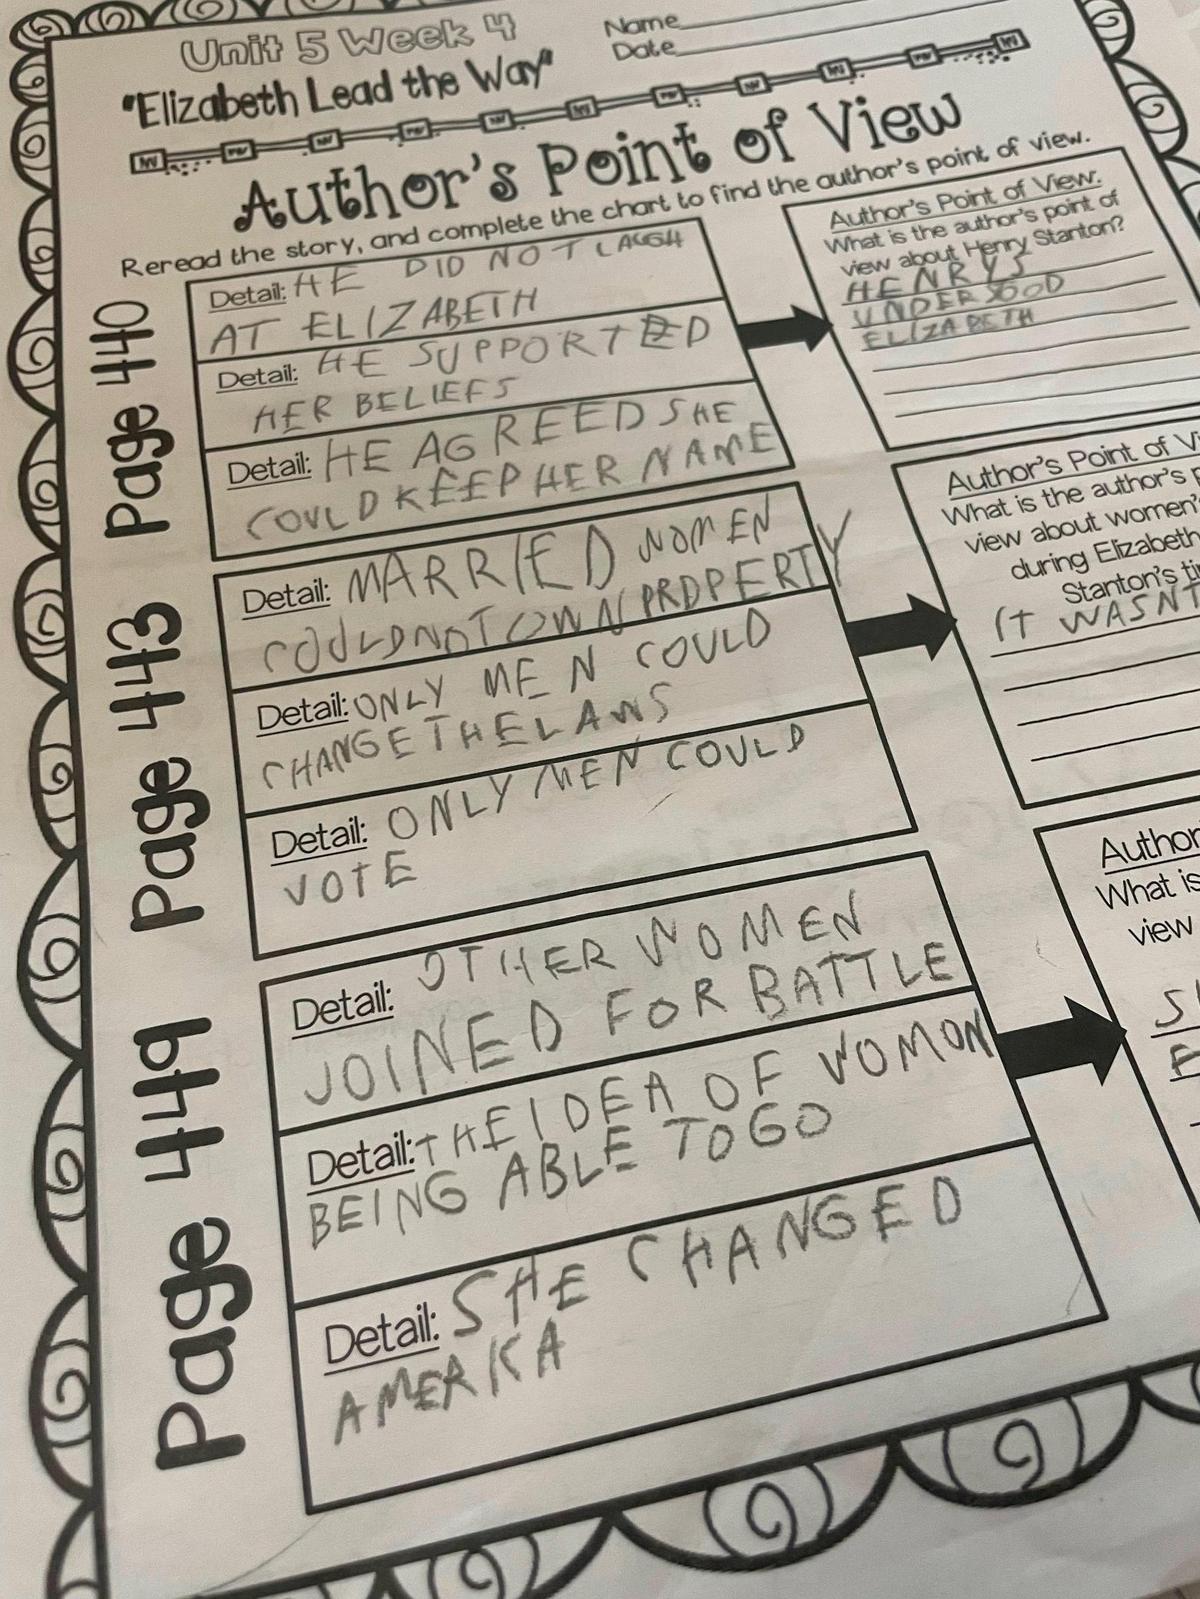 Unit 5 Week 4
Name
Date
"Elizabeth Lead the Way"
Author's Point of View
Reread the story, and complete the chart to find the author's point of view.
Page 440
Detail: HE DID NOT LAUGH
AT ELIZABETH
Detail: HE SUPPORTED
HER BELIEFS
Detail: HE AGREED SHE
COULD KEEP HER NAME
Author's Point of View:
What is the author's point of
view about Henry Stanton?
HENRYS
UNDERSOOD
ELIZABETH
Page 443
Detail: MARRIED WOMEN
COULD NOT OWN PROPERTY
Detail: ONLY MEN COULD
CHANGE THE LAWS
Detail: ONLY MEN COULD
VOTE
Author's Point of Vi
What is the author's p
view about women's
during Elizabeth
Stanton's ti
IT WASNT
Page 449
Detail: OTHER WOMEN
JOINED FOR BATTLE
Detail: THE IDEA OF WOMON
BEING ABLE TO GO
Detail: SHE CHANGED
AMERKA
Author
What is
view